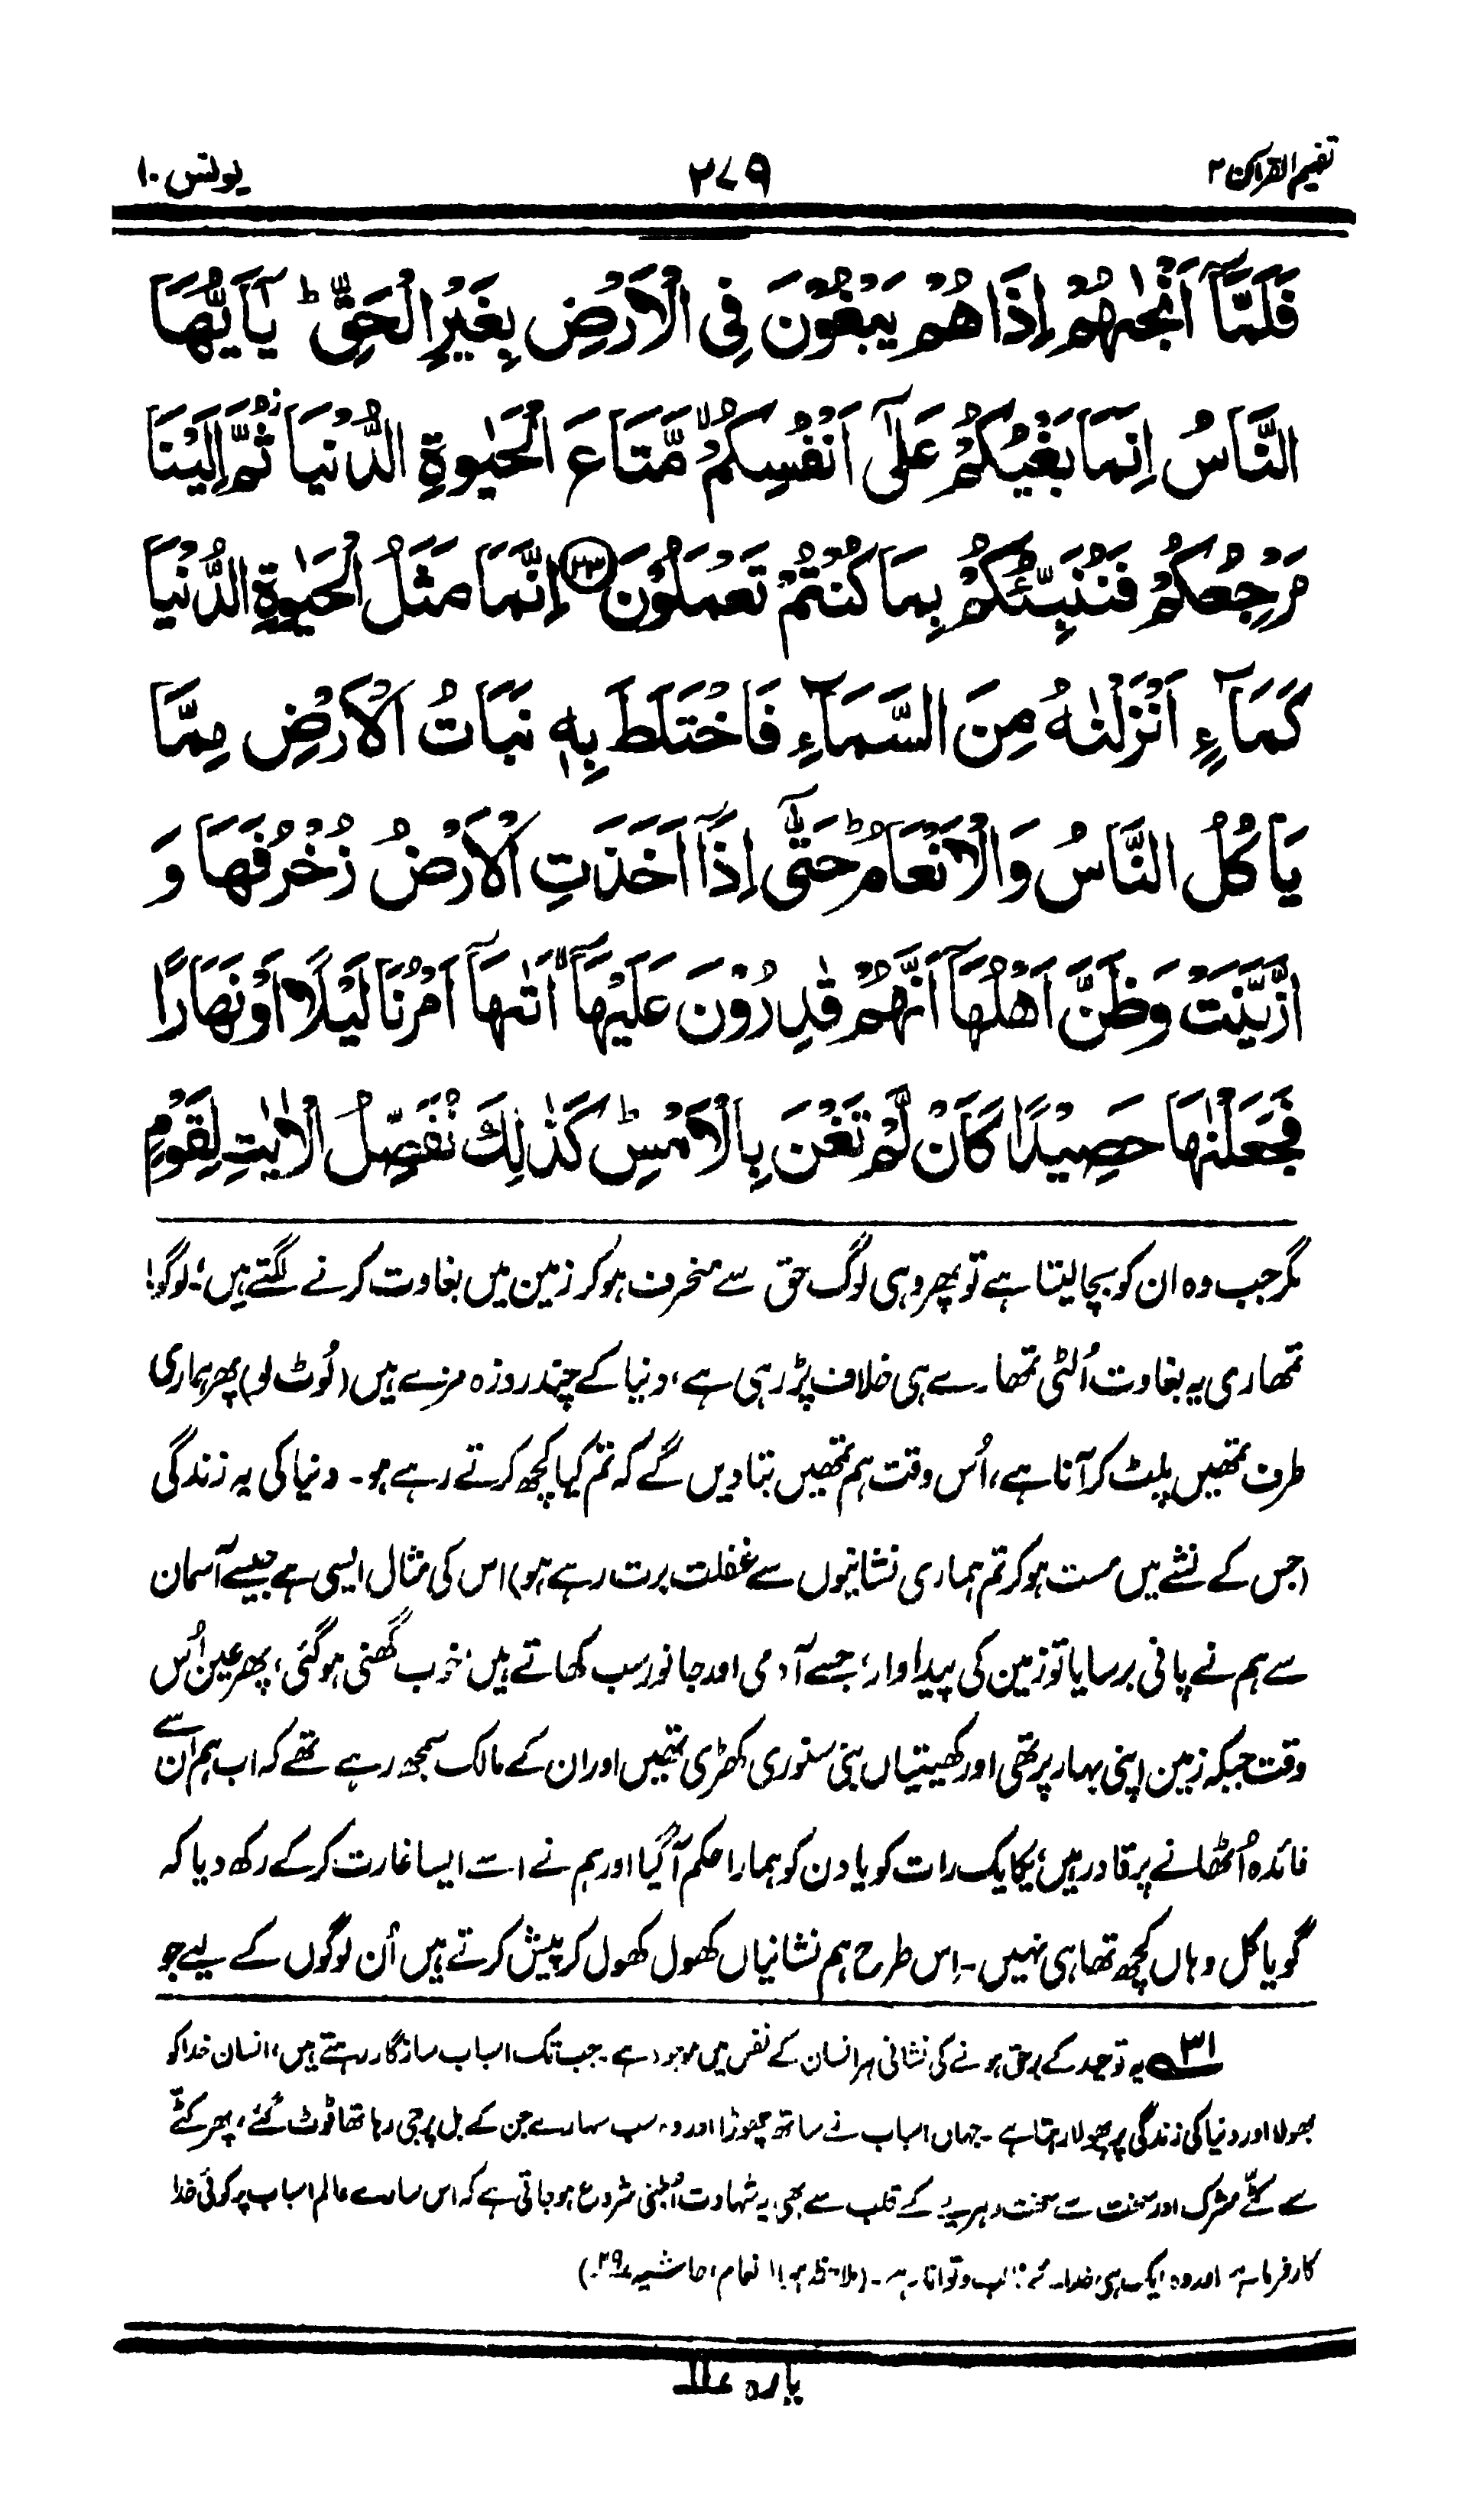 تفہیم القرآن ۲
۲۷۹
یونس ۱۰
فَلَمَّآ اَنْجٰىهُمْ اِذَا هُمْ يَبْغُوْنَ فِى الْاَرْضِ بِغَيْرِ الْحَقِّ ؕ يٰۤاَيُّهَا
النَّاسُ اِنَّمَا بَغْيُكُمْ عَلٰٓى اَنْفُسِكُمْ ۙ مَّتَاعَ الْحَيٰوةِ الدُّنْيَا ۫ ثُمَّ اِلَيْنَا
مَرْجِعُكُمْ فَنُنَبِّئُكُمْ بِمَا كُنْتُمْ تَعْمَلُوْنَ ﴿۲۳﴾ اِنَّمَا مَثَلُ الْحَيٰوةِ الدُّنْيَا
كَمَآءٍ اَنْزَلْنٰهُ مِنَ السَّمَآءِ فَاخْتَلَطَ بِهٖ نَبَاتُ الْاَرْضِ مِمَّا
يَاْكُلُ النَّاسُ وَالْاَنْعَامُ ؕ حَتّٰۤى اِذَاۤ اَخَذَتِ الْاَرْضُ زُخْرُفَهَا وَ
ازَّيَّنَتْ وَظَنَّ اَهْلُهَاۤ اَنَّهُمْ قٰدِرُوْنَ عَلَيْهَاۤ ۙ اَتٰىهَاۤ اَمْرُنَا لَيْلًا اَوْ نَهَارًا
فَجَعَلْنٰهَا حَصِيْدًا كَاَنْ لَّمْ تَغْنَ بِالْاَمْسِ ؕ كَذٰلِكَ نُفَصِّلُ الْاٰيٰتِ لِقَوْمٍ
مگر جب وہ ان کو بچا لیتا ہے تو پھر وہی لوگ حق سے منحرف ہو کر زمین میں بغاوت کرنے لگتے ہیں۔ لوگو!
تمھاری یہ بغاوت اُلٹی تمھارے ہی خلاف پڑ رہی ہے، دنیا کے چند روزہ مزے ہیں (لُوٹ لو) پھر ہماری
طرف تمھیں پلٹ کر آنا ہے، اُس وقت ہم تمھیں بتا دیں گے کہ تم کیا کچھ کرتے رہے ہو۔ دنیا کی یہ زندگی
(جس کے نشے میں مست ہو کر تم ہماری نشانیوں سے غفلت برت رہے ہو) اس کی مثال ایسی ہے جیسے آسمان
سے ہم نے پانی برسایا تو زمین کی پیداوار، جسے آدمی اور جانور سب کھاتے ہیں، خوب گھنی ہو گئی، پھر عین اُس
وقت جبکہ زمین اپنی بہار پر تھی اور کھیتیاں بنی سنوری کھڑی تھیں اور ان کے مالک سمجھ رہے تھے کہ اب ہم ان سے
فائدہ اُٹھانے پر قادر ہیں، یکایک رات کو یا دن کو ہمارا حکم آ گیا اور ہم نے اسے ایسا غارت کر کے رکھ دیا کہ
گویا کل وہاں کچھ تھا ہی نہیں۔ اِس طرح ہم نشانیاں کھول کھول کر پیش کرتے ہیں اُن لوگوں کے لیے جو
۳۱ یہ توحید کے برحق ہونے کی نشانی ہر انسان کے نفس میں موجود ہے۔ جب تک اسباب سازگار رہتے ہیں، انسان خدا کو
بھولا اور دنیا کی زندگی پر پھولا رہتا ہے۔ جہاں اسباب نے ساتھ چھوڑا اور وہ سب سہارے جن کے بل پر جی رہا تھا ٹوٹ گئے، پھر کٹّے
سے کٹّے مشرک اور سخت سے سخت دہریے کے قلب سے بھی یہ شہادت اُبلنی شروع ہو جاتی ہے کہ اس سارے عالم اسباب پر کوئی خدا
کارفرما ہے اور وہ ایک ہی خدائے غالب و توانا ہے۔ (ملاحظہ ہو الانعام، حاشیہ ۲۹)
پارہ ۱۱